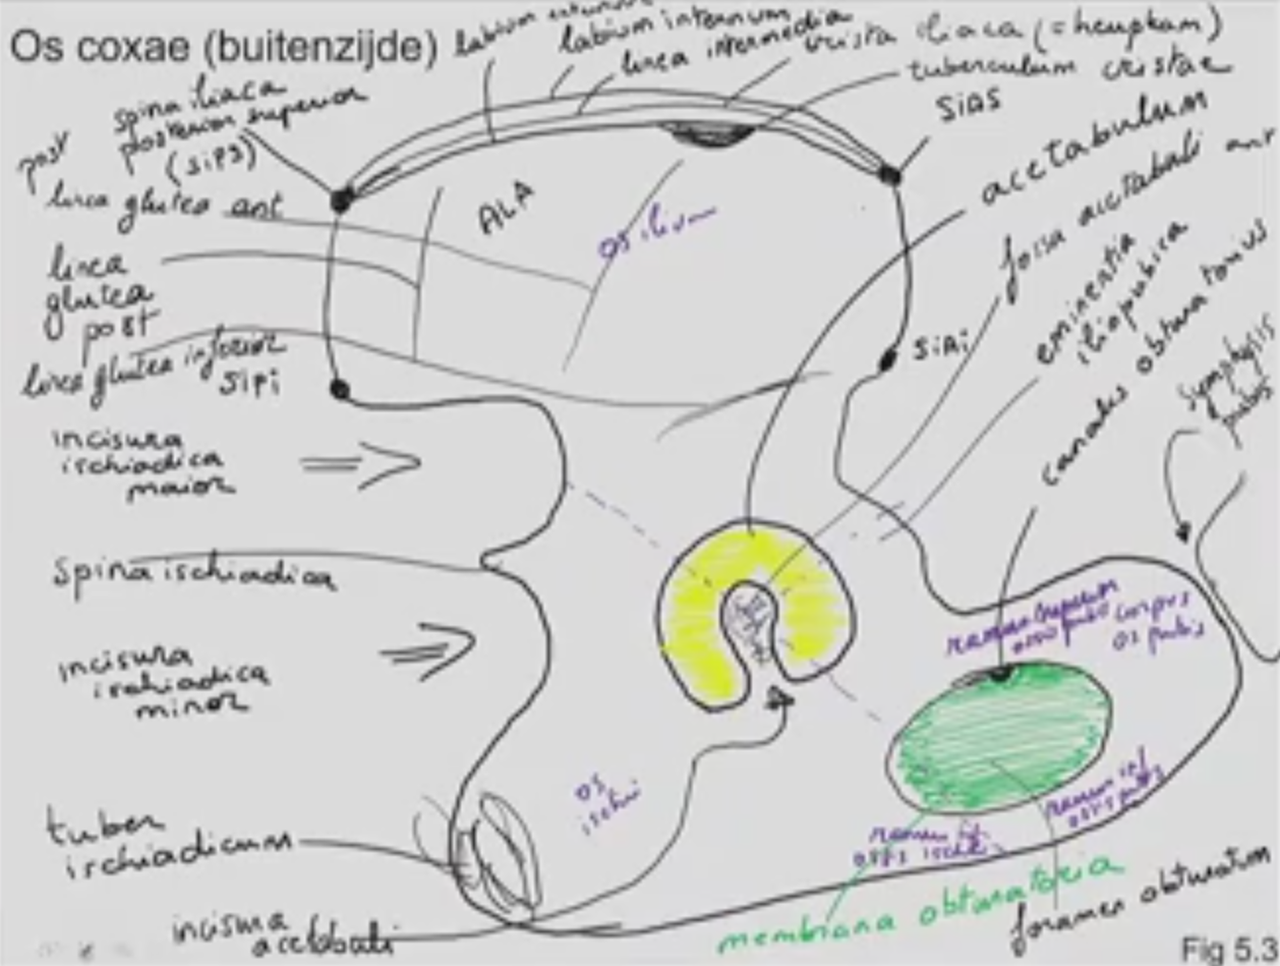 Os coxae (buitenzijde)
labium externum
labium internum
linea intermedia
crista iliaca (= heupkam)
tuberculum cristae
SIAS
spina iliaca
posterior superior
(SIPS)
post
linea glutea ant
linea
glutea
post
linea glutea inferior
SIPI
ALA
os ilium
acetabulum
fossa acetabuli
ant
eminentia
iliopubica
canalis obturatorius
symphysis
pubis
SIAI
incisura
ischiadica
maior
spina ischiadica
incisura
ischiadica
minor
tuber
ischiadicum
incisura
acetabuli
os
ischii
ramus superior
ossis pubis
corpus
os pubis
ramus inf
ossis pubis
ramus inf
ossis ischii
membrana obturatoria
foramen obturatum
Fig 5.3